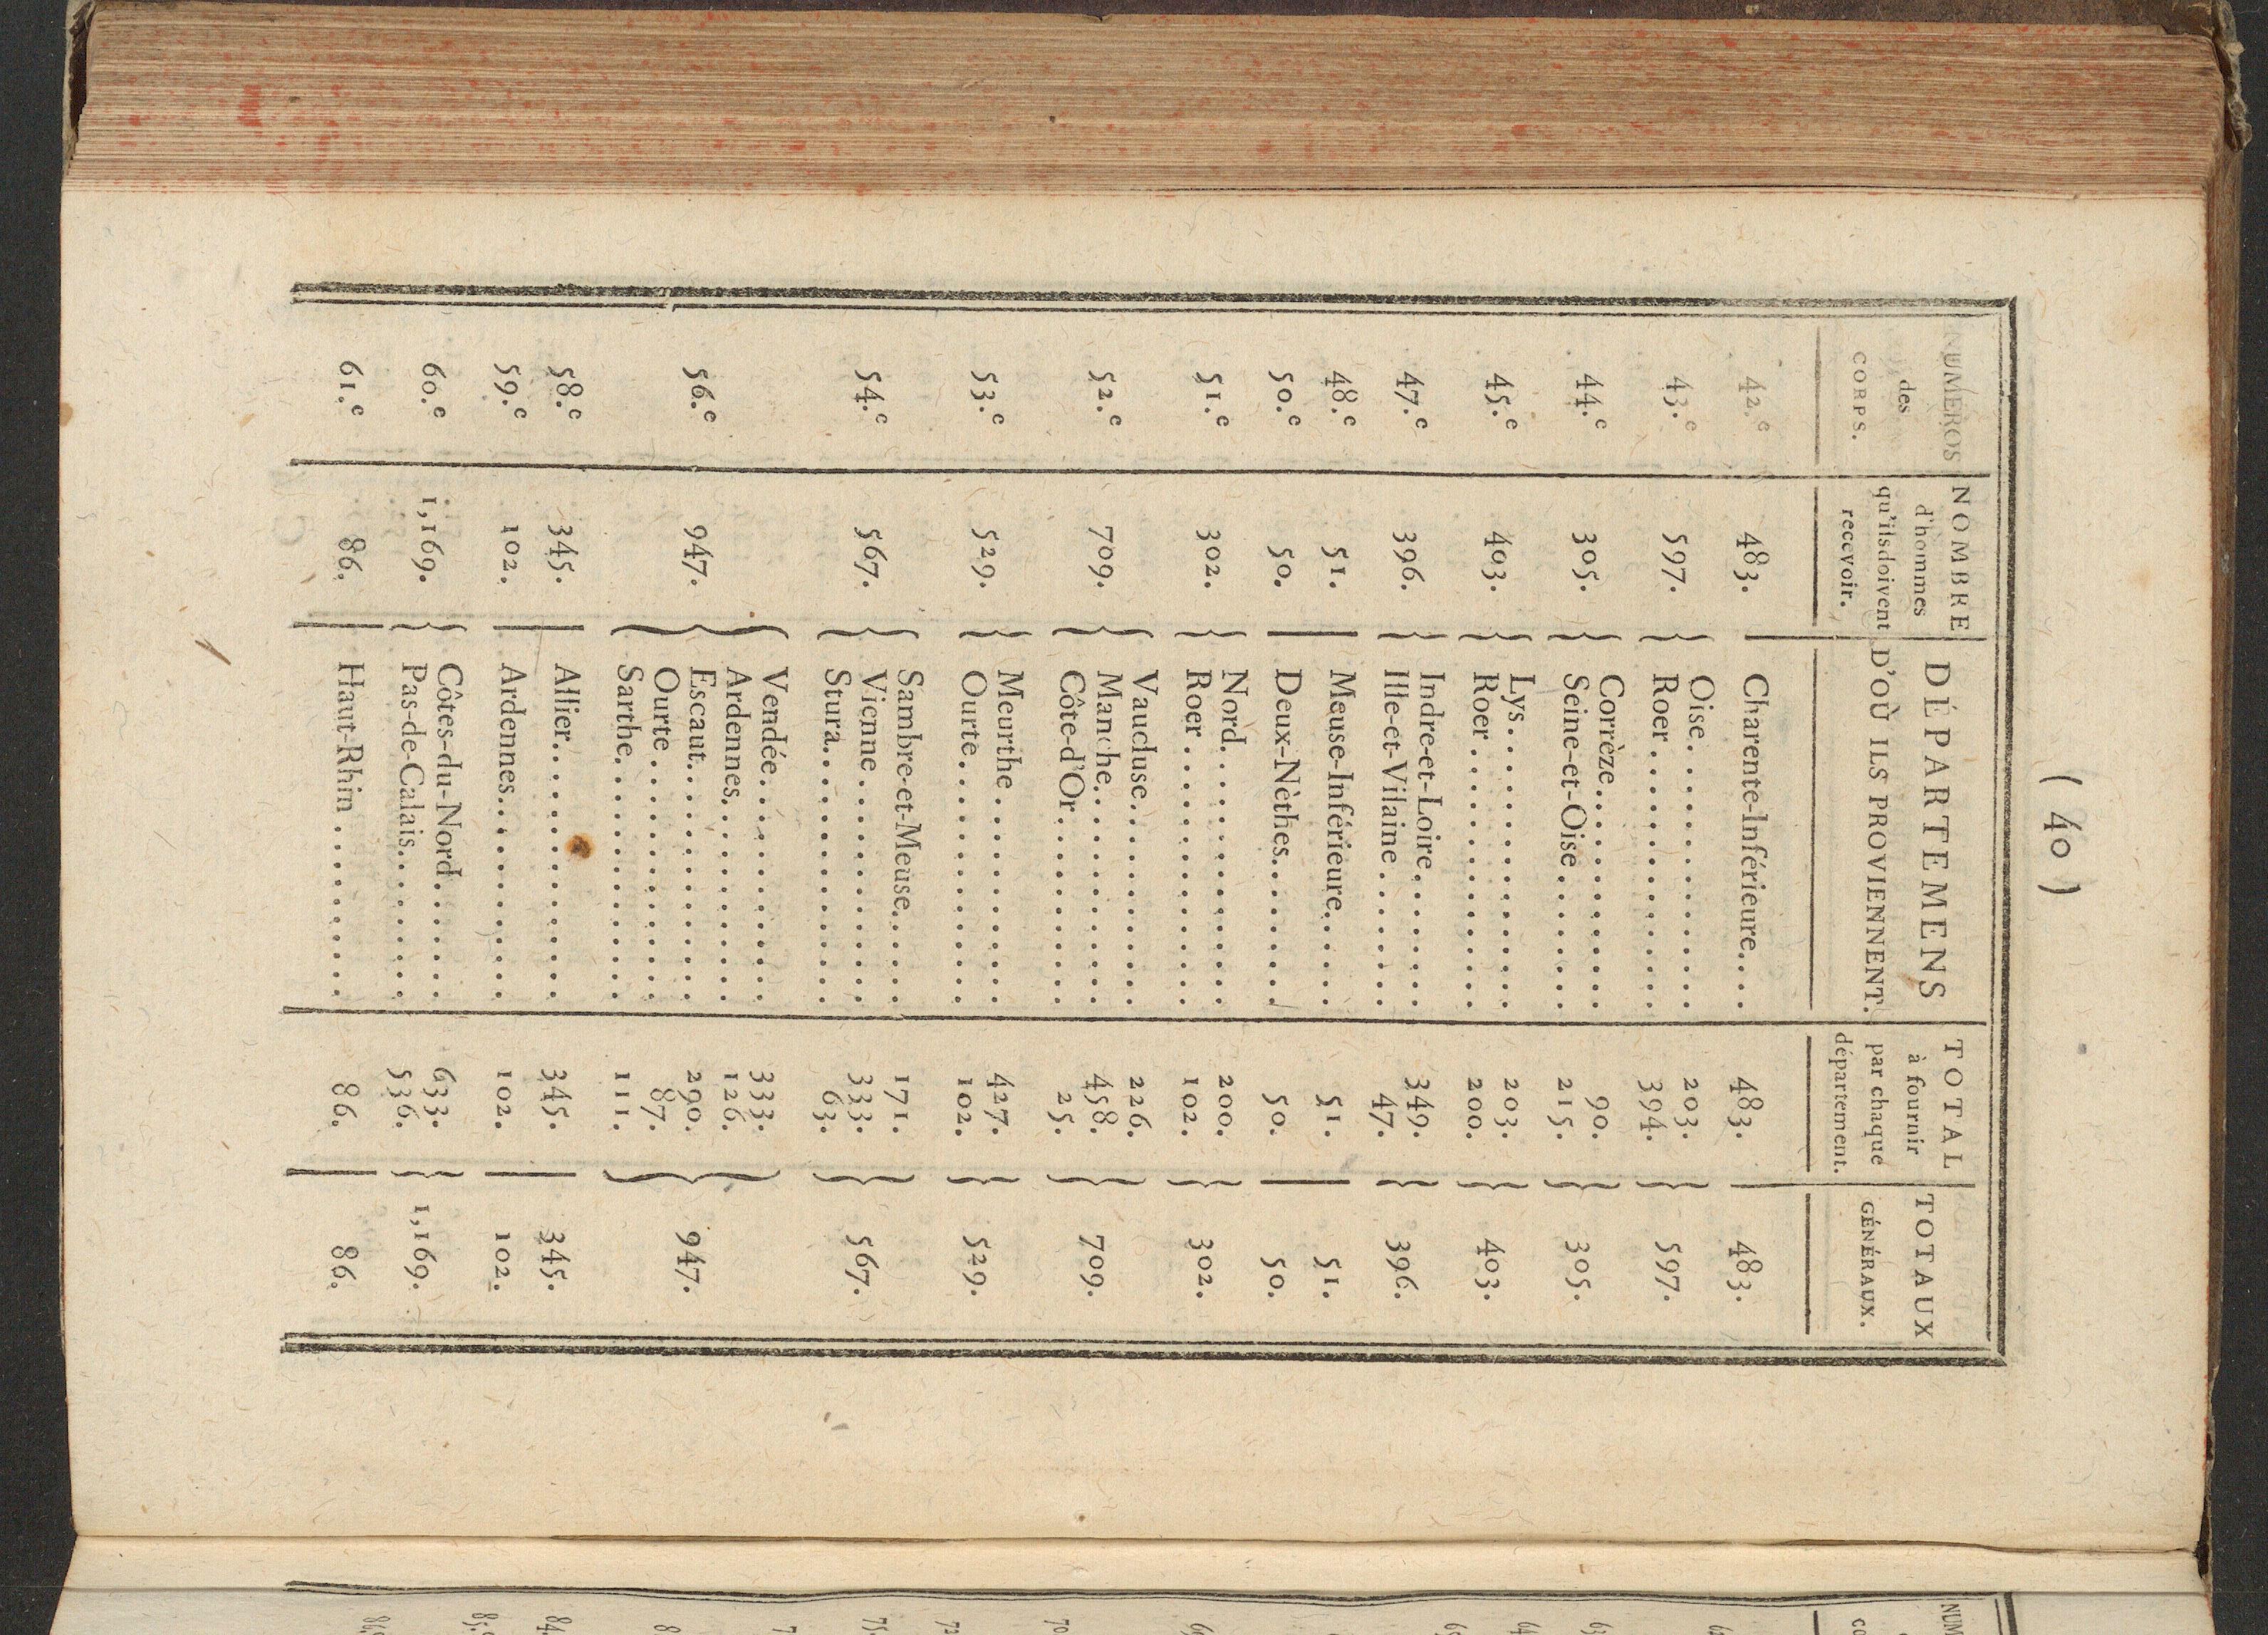 ( 40 )
NUMÉROS des CORPS. | NOMBRE d'hommes qu'ils doivent recevoir. | DÉPARTEMENS D'OÙ ILS PROVIENNENT. | TOTAL à fournir par chaque département. | TOTAUX GÉNÉRAUX.
42.e 483. Charente-Inférieure.... 483. 483.
43.e 597. { Oise.............. 203. } 597.
Roer............. 394.
44.e 305. { Corrèze........... 90. } 305.
Seine-et-Oise........ 215.
45.e 403. { Lys.............. 203. } 403.
Roer............. 200.
47.e 396. { Indre-et-Loire........ 349. } 396.
Ille-et-Vilaine........ 47.
48.e 51. Meuse-Inférieure...... 51. 51.
50.e 50. Deux-Nèthes........ 50. 50.
51.e 302. { Nord............. 200. } 302.
Roer............. 102.
52.e 709. { Vaucluse........... 226. } 709.
Manche........... 458.
Côte-d'Or.......... 25.
53.e 529. { Meurthe........... 427. } 529.
Ourte............ 102.
54.e 567. { Sambre-et-Meuse...... 171. } 567.
Vienne........... 333.
Stura............. 63.
56.e 947. { Vendée............ 333. } 947.
Ardennes.......... 126.
Escaut............ 290.
Ourte............ 87.
Sarthe............ 111.
58.e 345. Allier............. 345. 345.
59.e 102. Ardennes.......... 102. 102.
60.e 1,169. { Côtes-du-Nord....... 633. } 1,169.
Pas-de-Calais........ 536.
61.e 86. Haut-Rhin......... 86. 86.
NUM
CO